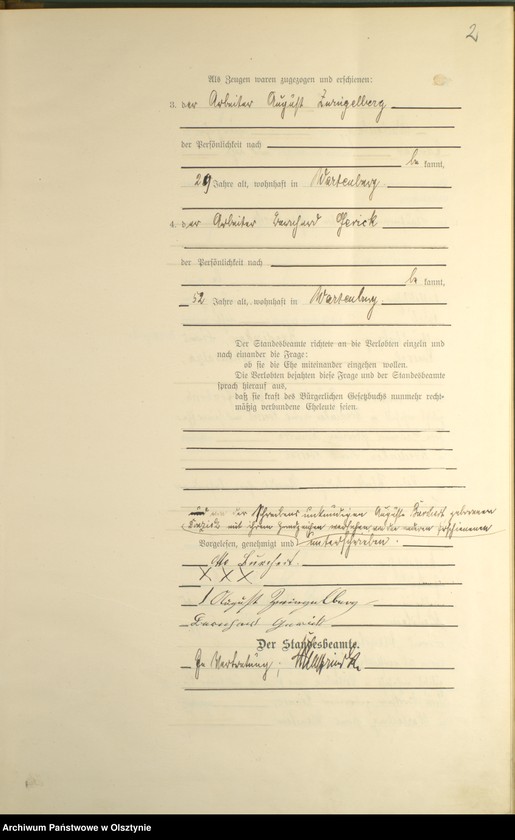 2
Als Zeugen waren zugezogen und erschienen:
3. der Arbeiter August Zwingelberg
der Persönlichkeit nach
be kannt,
29 Jahre alt, wohnhaft in Wartenburg.
4. der Arbeiter Bernhard Gerick
der Persönlichkeit nach
be kannt,
52 Jahre alt, wohnhaft in Wartenburg.
Der Standesbeamte richtete an die Verlobten einzeln und
nach einander die Frage:
ob sie die Ehe miteinander eingehen wollen.
Die Verlobten bejahten diese Frage und der Standesbeamte
sprach hierauf aus,
daß sie kraft des Bürgerlichen Gesetzbuchs nunmehr recht-
mäßig verbundene Eheleute seien.
von der Schreibens unkundigen Auguste geborenen
mit ihrem Handzeichen versehen von den anderen Erschienenen
Vorgelesen, genehmigt und unterschrieben.
Otto
XXX
August Zwingelberg
Bernhard Gerick
Der Standesbeamte.
In Vertretung:
Archiwum Państwowe w Olsztynie